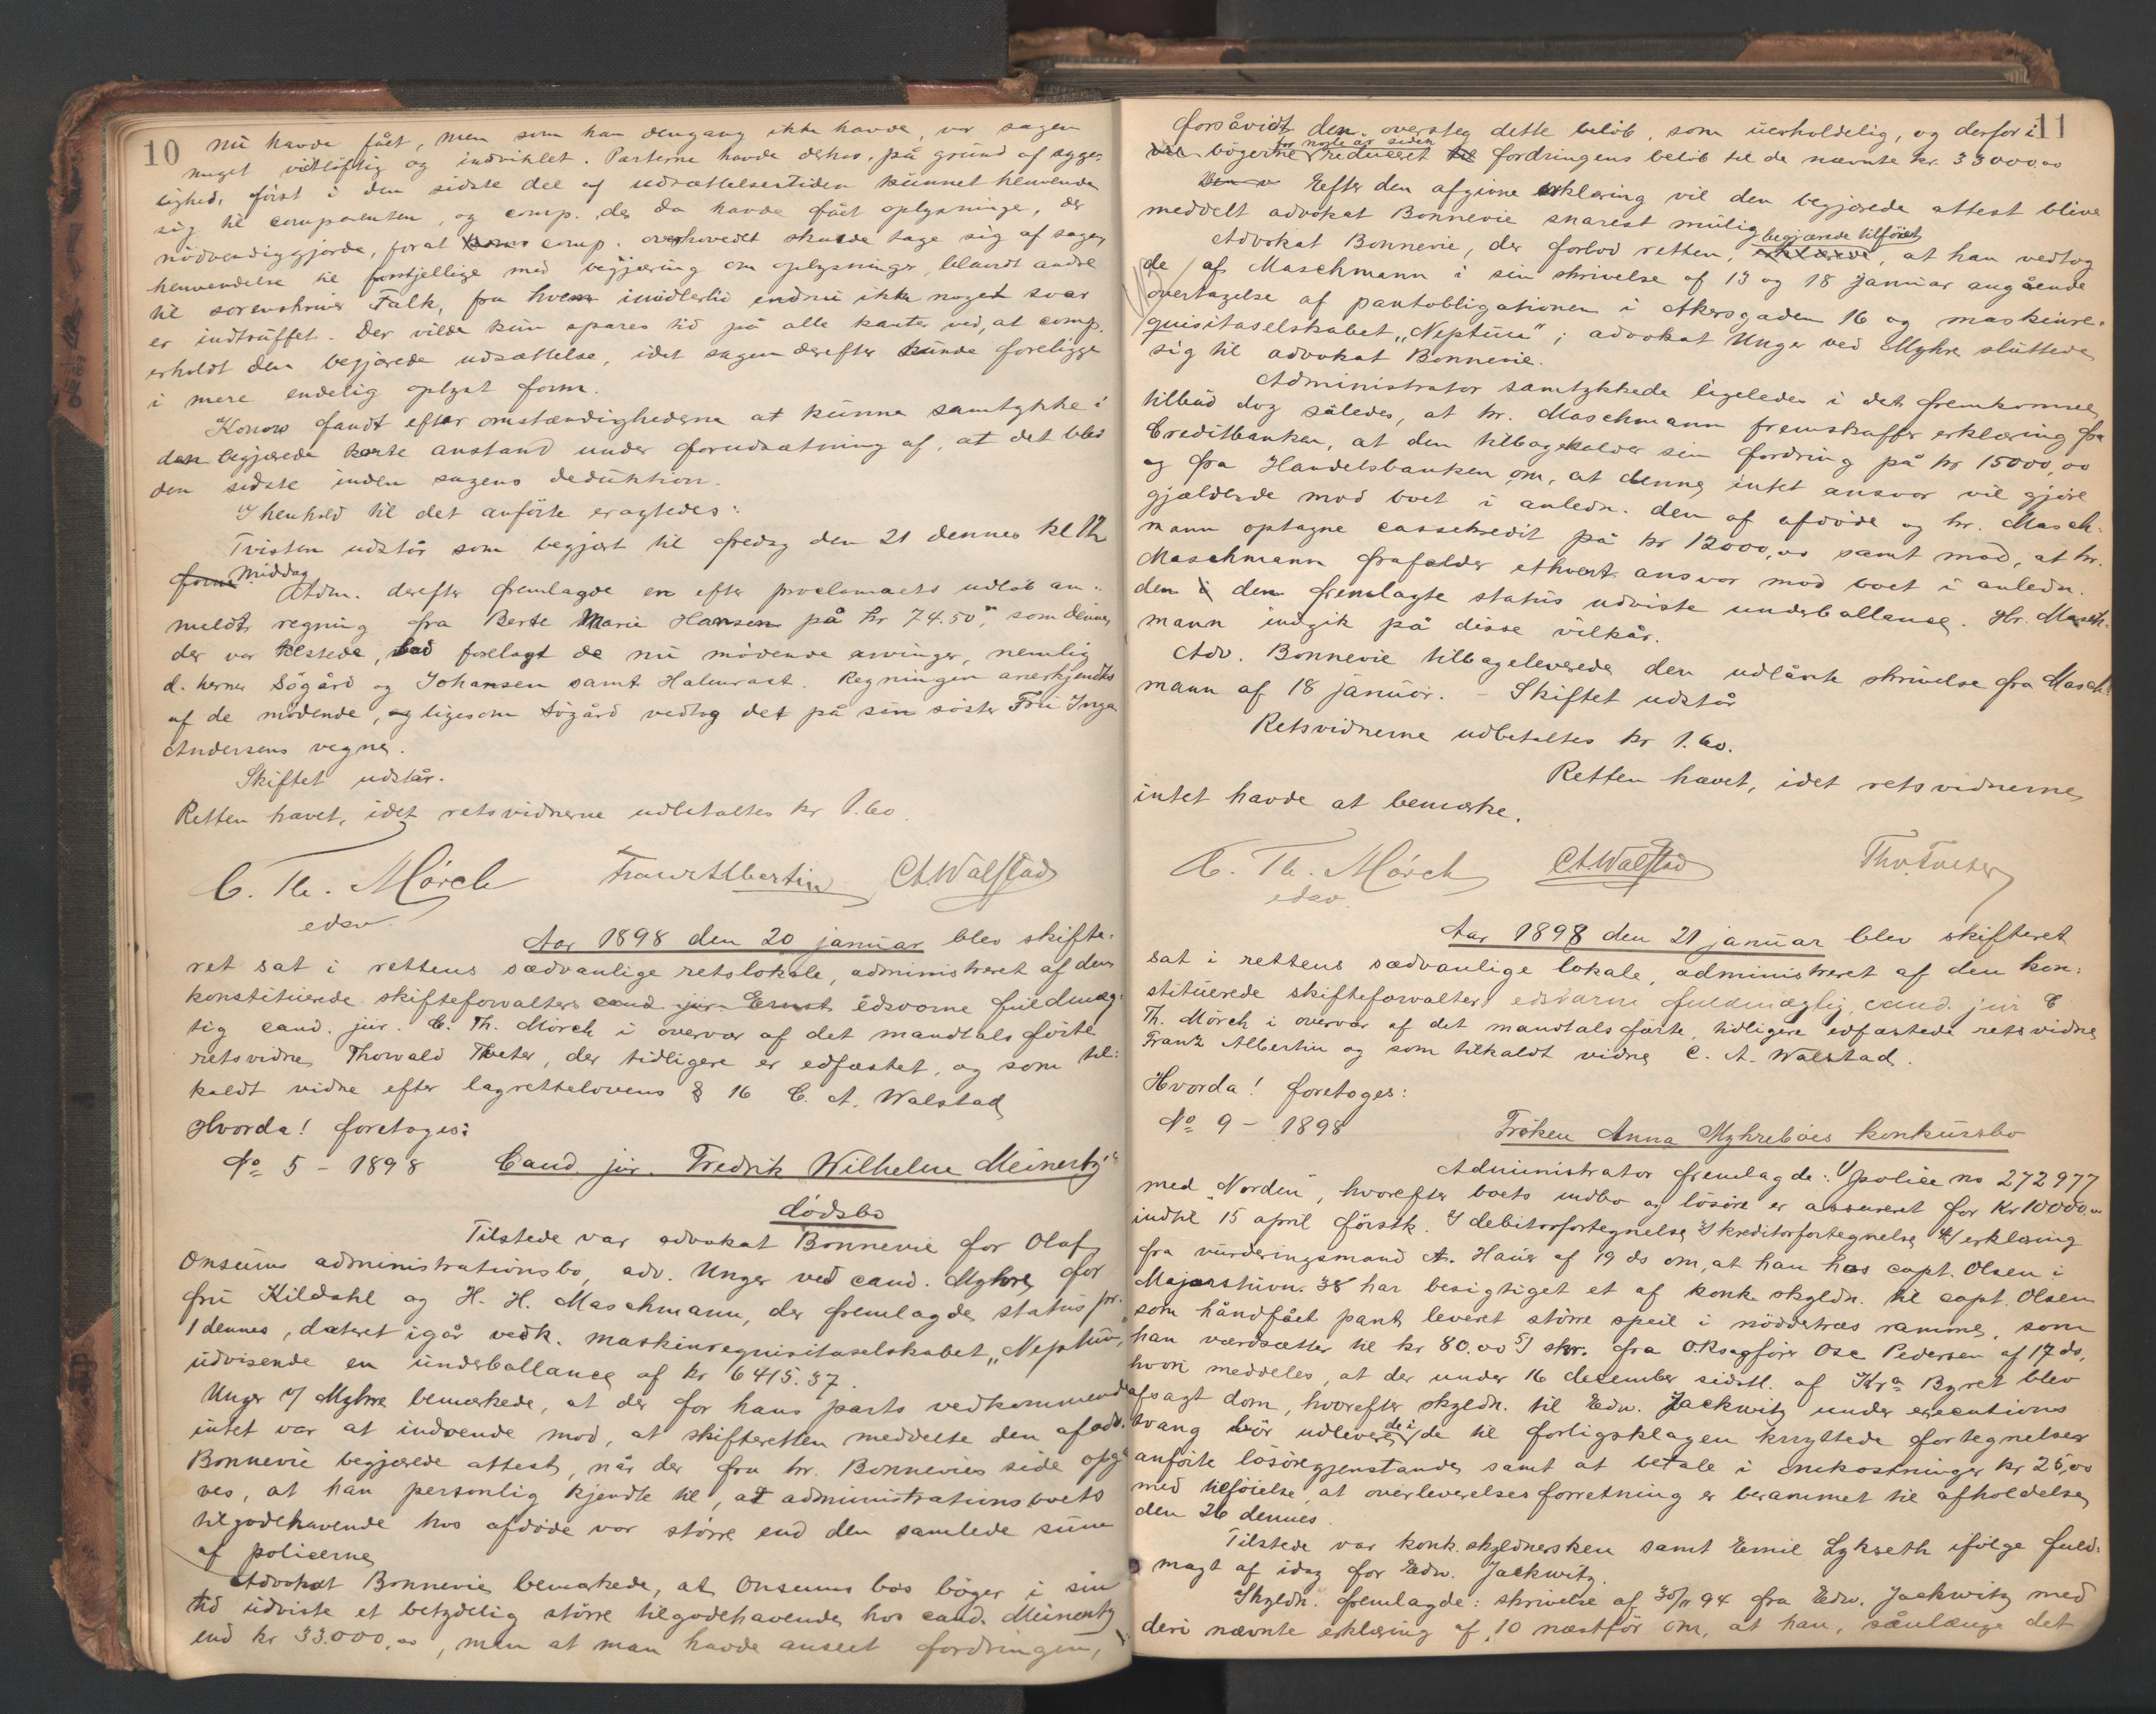 10
nu havde fået, men som han dengang ikke havde, var sagen
meget vidtløftig og indviklet. Parterne havde derhos, på grund af syge-
lighed, først i den sidste del af udsættelsestiden kunnet henvende
sig til comparenten, og comp. der da havde fået oplysninger, der
nödvendiggjorde, forat comp. overhovedet skulde tage sig af sagen
henvendelse til forskjellige med begjæring om oplysninger, blandt andre
til sorenskriver Falk, fra hvem imidlertid endnu ikke noget svar
er indtruffet. Der vilde kun spares tid på alle kanter ved, at comp.
erholdt den begjærede udsættelse, idet sagen derefter kunde foreligge
i mere endelig oplyst form.
Konow fandt efter omstændighederne at kunne samtykke i
den begjærede korte anstand under forudsætning af, at det blev
den sidste inden sagens deduktion.
I henhold til det anförte eragtedes:
Tvisten udstår som begjært til fredag den 21 dennes kl 12
form middag
Adm. derefter fremlagde en efter proclamaets udløb an-
meldt regning fra Berte Marie Hansen på kr 74.50, som denne,
der var tilstede, bad forelagt de nu mödende arvinger, nemlig
d. herrer Sögård og Johansen samt Halmrast. Regningen anerkjendtes
af de mödende, og ligesom Sögård vedtog det på sin söster Fru Inga
Andersens vegne.
Skiftet udstår.
Retten hævet, idet retsvidnerne udbetaltes kr 1.60.
C. Th. Mörch Franz Albertin C A Walstad
edsv.
Aar 1898 den 20 januar blev skifte-
ret sat i rettens sædvanlige retslokale, administreret af den
konstituerede skifteforvalter cand. jur. Ernst edsvorne fuldmæg-
tig cand. jur. C. Th. Mörch i overvær af det mandtalsførte
retsvidne Thorvald Tveter, der tidligere er edfæstet, og som til-
kaldt vidne efter lagrettelovens § 16 C. A. Walstad
Hvorda! foretoges:
No 5 - 1898 Cand. jur. Fredrik Wilhelm Meinertz'
dödsbo
Tilstede var advokat Bonnevie for Olaf
Onsums administrationsbo, adv. Unger ved cand. Myhre for
fru Kildahl og H. H. Maschmann, der fremlagde status pr.
1 dennes, dateret igår vedk. maskinrequisitaselskabet „Neptun",
udvisende en underballance af kr 6415.37.
Unger v/ Myhre bemærkede, at der for hans parts vedkommende
intet var at indvende mod, at skifteretten meddelte den af adv.
Bonnevie begjærede attest, når der fra hr. Bonnevies side opgi-
ves, at han personlig kjendte til, at administrationsboets
tilgodehavende hos afdöde var större end den samlede sum
af policerne
Advokat Bonnevie bemærkede, at Onsums bos böger i sin
tid udviste et betydelig större tilgodehavende hos cand. Meinertz
end kr 33.000,00, men at man havde anseet fordringen,
11
forsåvidt den oversteg dette belöb, som uerholdelig, og derfor i
bögerne for nogle år siden reduceret til fordringens belöb til de nævnte kr. 33000,00
Den v Efter den afgivne erklæring vil den begjærede attest blive
meddelt advokat Bonnevie snarest mulig
Advokat Bonnevie, der forlod retten, begjærede tilføiet, at han vedtog
de af Maschmann i sin skrivelse af 13 og 18 januar angående
overtagelse af pantobligationen i Akersgaden 16 og maskinre-
quisitaselskabet „Neptun"; advokat Unger ved Myhre sluttede
sig til advokat Bonnevie.
Administrator samtykkede ligeledes i det fremkomne
tilbud dog således, at hr. Maschmann fremskaffer erklæring fra
Creditbanken, at den tilbagekalder sin fordring på kr 15000,00
og fra Handelsbanken om, at denne intet ansvar vil gjöre
gjældende mod boet i anledn. den af afdöde og hr. Masch-
mann optagne cassekredit på kr 12000,00 samt mod, at hr.
Maschmann frafalder ethvert ansvar mod boet i anledn.
den i den fremlagte status udviste underballance. Hr. Masch-
mann indgik på disse vilkår.
Adv. Bonnevie tilbageleverede den udlånte skrivelse fra Masch-
mann af 18 januar. - Skiftet udstår
Retsvidnerne udbetaltes kr 1.60.
Retten hævet, idet retsvidnerne
intet havde at bemærke.
C. Th. Mörch C A Walstad Thv. Tveter
edsv.
Aar 1898 den 21 januar blev skifteret
sat i rettens sædvanlige lokale, administreret af den kon-
stituerede skifteforvalter, edsvorne fuldmægtig, cand. jur C
Th. Mörch i overvær af det mandtalsførte, tidligere edfæstede retsvidne
Franz Albertin og som tilkaldt vidne C. A. Walstad.
Hvorda! foretoges:
No 9 - 1898 Fröken Anna Myhreböes konkursbo
Administrator fremlagde: 1) police no 272977
med „Norden", hvorefter boets indbo og lösöre er assureret for kr 10000,00
indtil 15 april förstk. 2) debitorfortegnelse 3) kreditorfortegnelse 4) erklæring
fra vurderingsmand A. Hauer af 19 ds om, at han hos capt. Olsen i
Majorstuvn. 38 har besigtiget et af konk. skyldn. til capt. Olsen
som håndfået pant leveret större speil i nöddetræs ramme, som
han værdsætter til kr 80.00 5) skr. fra O.Rsagförer Ose Pedersen af 17 ds,
hvori meddeles, at der under 16 december sidstl. af Kra Byret blev
afsagt dom, hvorefter skyldn. til Edw. Jackwitz under executions
tvang bör udlevere de i de til forligsklagen knyttede fortegnelser
anförte lösöregjenstande samt at betale i omkostninger kr 25,00
med tilföielse, at overleverelsesforretning er berammet til afholdelse
den 26 dennes.
Tilstede var konk. skyldnersken samt Emil Lykseth ifölge fuld-
magt af idag for Edw. Jackwitz.
Skyldn. fremlagde: skrivelse af 30/11 94 fra Edw. Jackwitz med
deri nævnte erklæring af 10 næstför om, at han, sålænge det